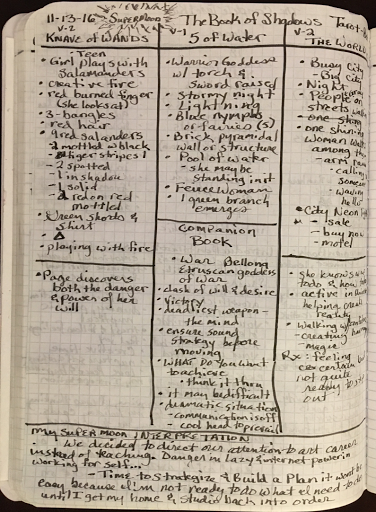 11-13-16
SUPERMOON
The Book of Shadows
Tarot
V-2
KNAVE of WANDS
- Teen
• Girl plays with
Salamanders
• creative fire
• red burned finger
(she looks at)
• 3-bangles
• red hair
• 9 red salanders
- 2 mottled w black
- tiger stripes 1
- 2 spotted
- 1 in shadow
- 1 solid
- 2 red on red
mottled
• Green shorts &
shirt
• playing with fire
• Page discovers
both the danger
& power of her
will
V-1
5 of Water
• Warrior Goddess
w/ torch &
sword raised
• Stormy night
• Lightning
• Blue nymphs
or fairies (5)
• Brick pyramidal
wall or structure
• Pool of water
- she may be
standing in it
• Fence Woman
1 green branch
emerges
COMPANION
BOOK
• War Bellona
Etruscan goddess
of war
• clash of will & desire
• victory
• deadliest weapon -
the mind
• ensure sound
strategy before
moving
• WHAT DO you want
to achieve
• think it thru
• it may be difficult
• dramatic situations
- communication is off
- cool head to prevail
V-2
THE WORLD
• Busy City
- Big city
• Night
• People on
streets
• one
• one shining
woman walks
among the
- arm
- calling
- waving
hello
• City Neon
- sale
- buy now
- motel
• she knows
to do & how to
• active in
helping create
reality
• walking
- creating
magic
Rx: feeling
certain
not quite
ready to
out
My SUPERMOON INTERPRETATION
• We decided to direct our attention to art career
instead of teaching. Danger in lazy & internet power in
working for self...
- Time to strategize & Build a Plan it won't be
easy because I'm not ready to do what I need to do
until I get my home & studio back into order